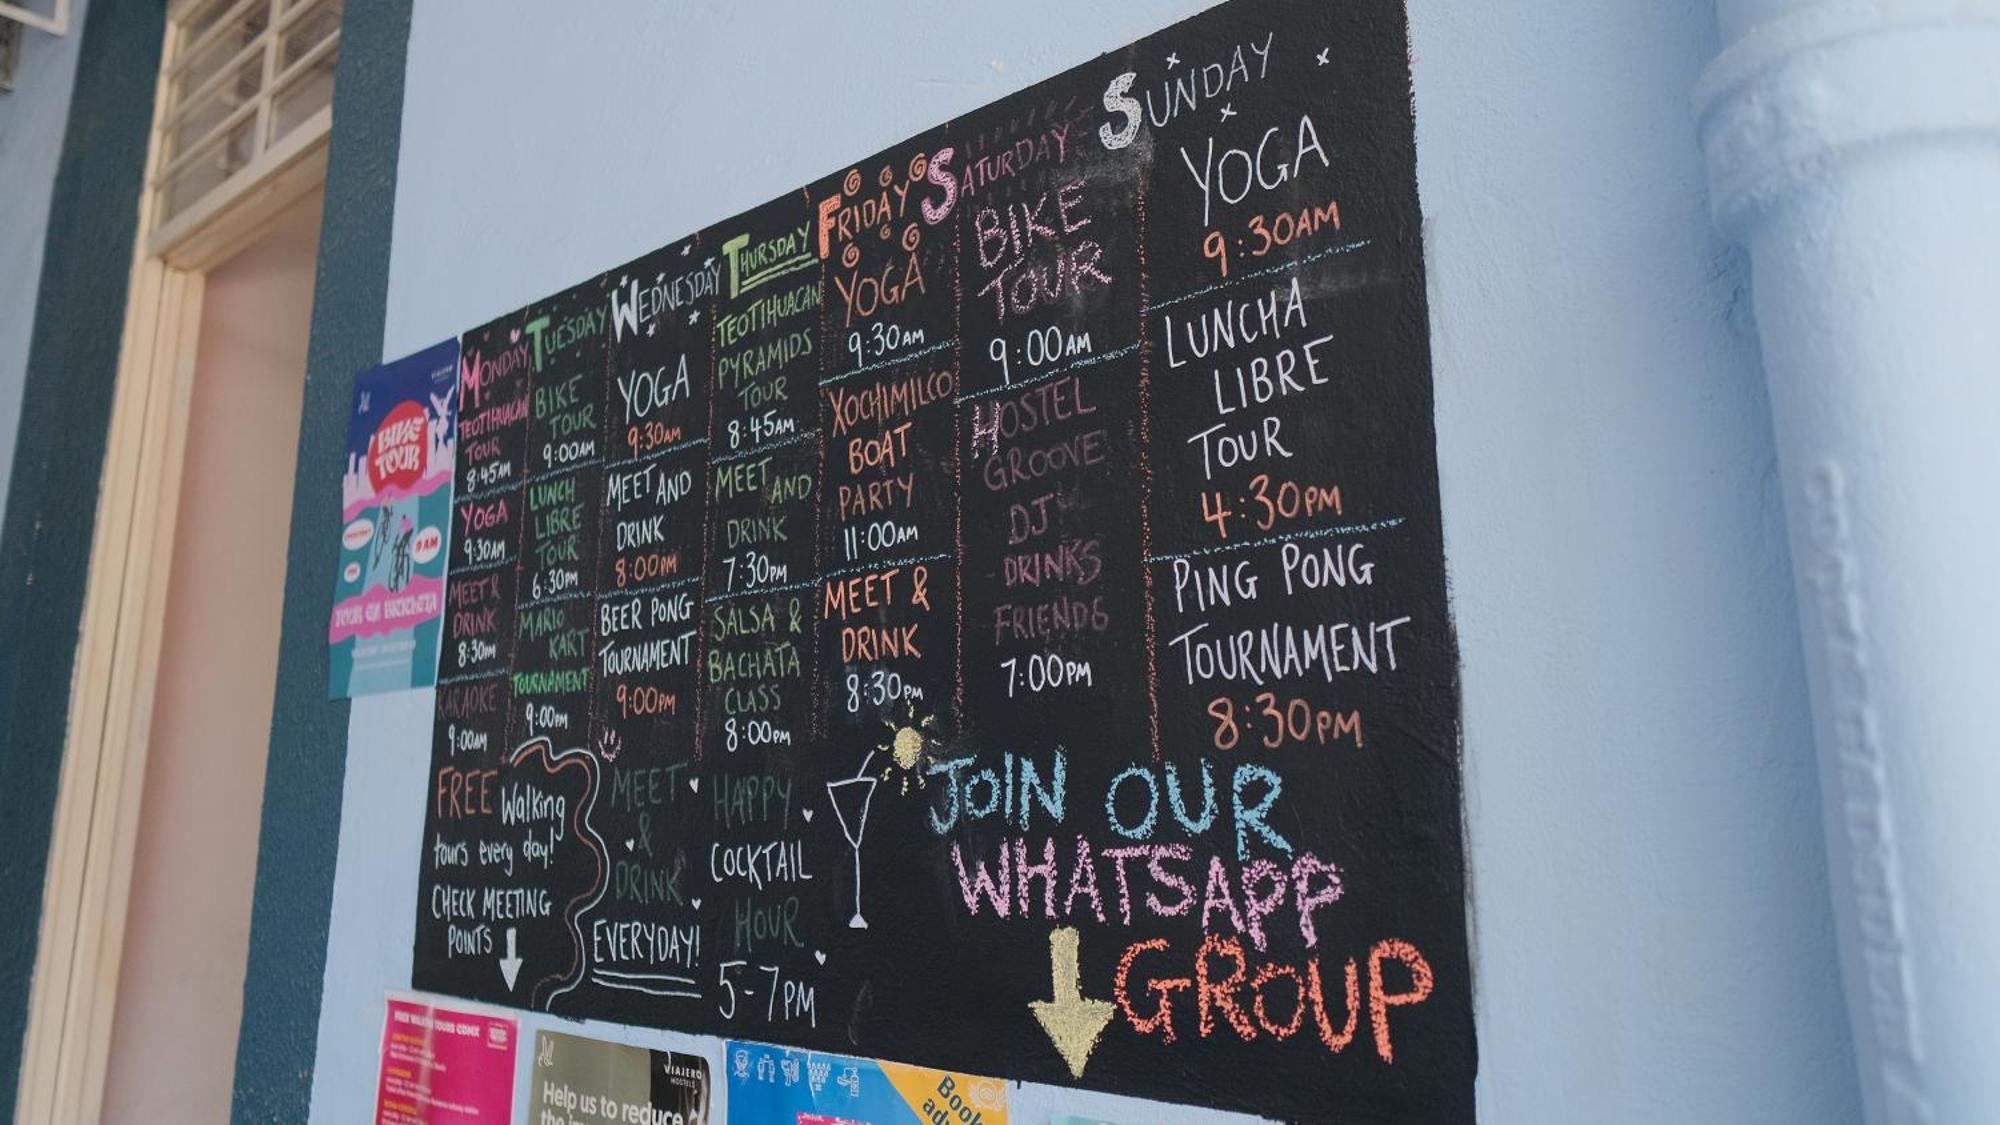 MONDAY
TEOTIHUACAN
TOUR
8:45AM
YOGA
9:30AM
MEET &
DRINK
8:30PM
KARAOKE
9:00AM
TUESDAY
BIKE
TOUR
9:00AM
LUNCH
LIBRE
TOUR
6:30PM
MARIO
KART
TOURNAMENT
9:00PM
WEDNESDAY
YOGA
9:30AM
MEET AND
DRINK
8:00PM
BEER PONG
TOURNAMENT
9:00PM
THURSDAY
TEOTIHUACAN
PYRAMIDS
TOUR
8:45AM
MEET AND
DRINK
7:30PM
SALSA &
BACHATA
CLASS
8:00PM
FRIDAY
YOGA
9:30AM
XOCHIMILCO
BOAT
PARTY
11:00AM
MEET &
DRINK
8:30PM
SATURDAY
BIKE
TOUR
9:00AM
HOSTEL
GROOVE
DJ
DRINKS
FRIENDS
7:00PM
SUNDAY
YOGA
9:30AM
LUNCHA
LIBRE
TOUR
4:30PM
PING PONG
TOURNAMENT
8:30PM
FREE Walking
tours every day!
CHECK MEETING
POINTS
MEET
&
DRINK
EVERYDAY!
HAPPY
COCKTAIL
HOUR
5-7PM
JOIN OUR
WHATSAPP
GROUP
BIKE
TOUR
9 AM
TOUR EN BICICLETA
FREE WALKING TOURS CDMX
VIAJERO
HOSTELS
Help us to reduce
Book